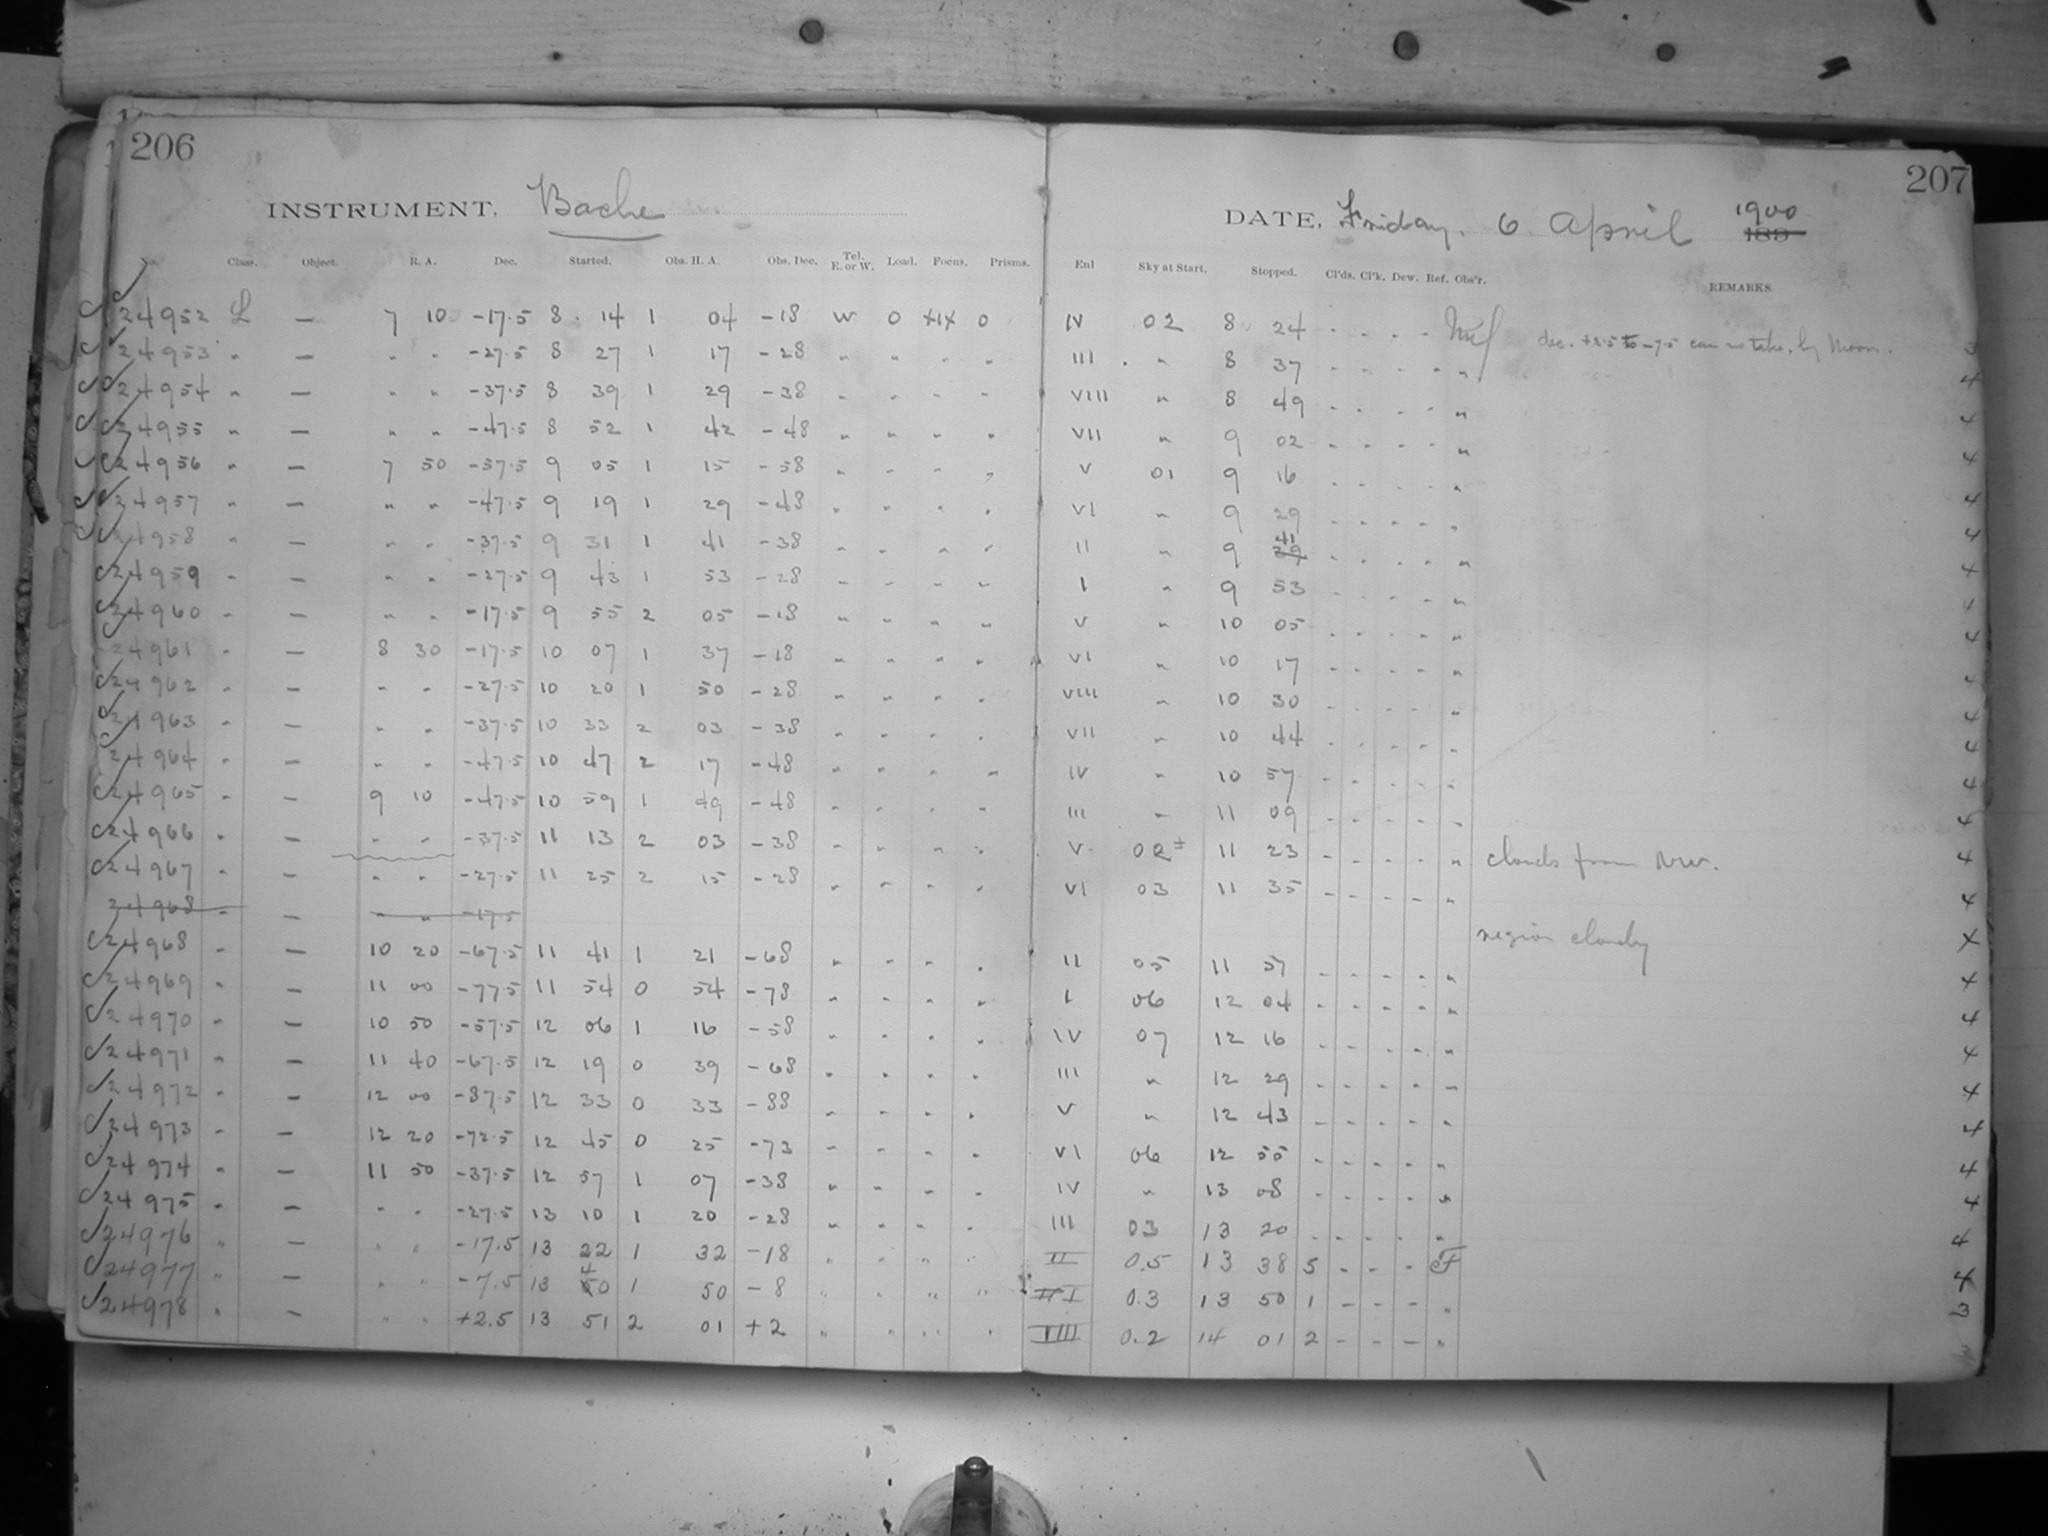 206
207
INSTRUMENT, Bache
DATE, Friday, 6 April 1900 189
No. Class. Object. R. A. Dec. Started. Obs. H. A. Obs. Dec. Tel. E. or W. Load. Focus. Prisms. Enl Sky at Start. Stopped. Cl'ds. Cl'k. Dew. Ref. Obs'r. REMARKS
24952 L — 7 10 -17.5 8 14 1 04 -18 W 0 0 IV 02 8 24 dec. +2.5 to -7.5 can no take, by Moon.
24953 " — " " -27.5 8 27 1 17 -28 " " " " III " 8 37 "
24954 " — " " -37.5 8 39 1 29 -38 " " " " VIII " 8 49 "
24955 " — " " -47.5 8 52 1 42 -48 " " " " VII " 9 02 "
24956 " — 7 50 -57.5 9 05 1 15 -58 " " " " V 01 9 16 "
24957 " — " " -47.5 9 19 1 29 -48 " " " " VI " 9 29 "
24958 " — " " -37.5 9 31 1 41 -38 " " " " II " 9 41 39 "
24959 " — " " -27.5 9 43 1 53 -28 " " " " I " 9 53 "
24960 " — " " -17.5 9 55 2 05 -18 " " " " V " 10 05 "
24961 " — 8 30 -17.5 10 07 1 37 -18 " " " " VI " 10 17 "
24962 " — " " -27.5 10 20 1 50 -28 " " " " VIII " 10 30 "
24963 " — " " -37.5 10 33 2 03 -38 " " " " VII " 10 44 "
24964 " — " " -47.5 10 47 2 17 -48 " " " " IV " 10 57 "
24965 " — 9 10 -47.5 10 59 1 49 -48 " " " " III " 11 09 "
24966 " — " " -37.5 11 13 2 03 -38 " " " " V 02± 11 23 " clouds from NW.
24967 " — " " -27.5 11 25 2 15 -28 " " " " VI 03 11 35 "
24968 " — " " -17.5 region cloudy
24968 " — 10 20 -67.5 11 41 1 21 -68 " " " " II 05 11 51 "
24969 " — 11 00 -77.5 11 54 0 54 -78 " " " " I 06 12 04 "
24970 " — 10 50 -57.5 12 06 1 16 -58 " " " " IV 07 12 16 "
24971 " — 11 40 -67.5 12 19 0 39 -68 " " " " III " 12 29 "
24972 " — 12 00 -87.5 12 33 0 33 -88 " " " " V " 12 43 "
24973 " — 12 20 -72.5 12 45 0 25 -73 " " " " VI 06 12 55 "
24974 " — 11 50 -37.5 12 57 1 07 -38 " " " " IV " 13 08 "
24975 " — " " -27.5 13 10 1 20 -28 " " " " III 03 13 20 "
24976 " — " " -17.5 13 22 1 32 -18 " " " " II 0.5 13 38 5 - - - F
24977 " — " " -7.5 13 40 1 50 -8 " " " " I 0.3 13 50 1 - - - "
24978 " — " " +2.5 13 51 2 01 +2 " " " " VIII 0.2 14 01 2 - - - "